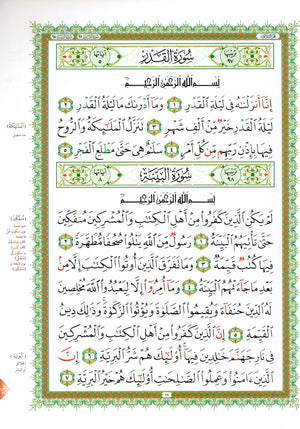 سُورَةُ القَدْرِ
بِسْمِ اللَّهِ الرَّحْمَٰنِ الرَّحِيمِ
إِنَّا أَنزَلْنَٰهُ فِى لَيْلَةِ الْقَدْرِ ١ وَمَا أَدْرَىٰكَ مَا لَيْلَةُ الْقَدْرِ ٢
لَيْلَةُ الْقَدْرِ خَيْرٌ مِّنْ أَلْفِ شَهْرٍ ٣ تَنَزَّلُ الْمَلَٰٓئِكَةُ وَالرُّوحُ
فِيهَا بِإِذْنِ رَبِّهِم مِّن كُلِّ أَمْرٍ ٤ سَلَٰمٌ هِىَ حَتَّىٰ مَطْلَعِ الْفَجْرِ ٥
سُورَةُ البَيِّنَةِ
بِسْمِ اللَّهِ الرَّحْمَٰنِ الرَّحِيمِ
لَمْ يَكُنِ الَّذِينَ كَفَرُوا مِنْ أَهْلِ الْكِتَٰبِ وَالْمُشْرِكِينَ مُنفَكِّينَ
حَتَّىٰ تَأْتِيَهُمُ الْبَيِّنَةُ ١ رَسُولٌ مِّنَ اللَّهِ يَتْلُوا صُحُفًا مُّطَهَّرَةً ٢
فِيهَا كُتُبٌ قَيِّمَةٌ ٣ وَمَا تَفَرَّقَ الَّذِينَ أُوتُوا الْكِتَٰبَ إِلَّا مِن
بَعْدِ مَا جَآءَتْهُمُ الْبَيِّنَةُ ٤ وَمَا أُمِرُوا إِلَّا لِيَعْبُدُوا اللَّهَ مُخْلِصِينَ
لَهُ الدِّينَ حُنَفَآءَ وَيُقِيمُوا الصَّلَوٰةَ وَيُؤْتُوا الزَّكَوٰةَ وَذَٰلِكَ دِينُ
الْقَيِّمَةِ ٥ إِنَّ الَّذِينَ كَفَرُوا مِنْ أَهْلِ الْكِتَٰبِ وَالْمُشْرِكِينَ
فِى نَارِ جَهَنَّمَ خَٰلِدِينَ فِيهَا أُولَٰٓئِكَ هُمْ شَرُّ الْبَرِيَّةِ ٦ إِنَّ
الَّذِينَ ءَامَنُوا وَعَمِلُوا الصَّٰلِحَٰتِ أُولَٰٓئِكَ هُمْ خَيْرُ الْبَرِيَّةِ ٧